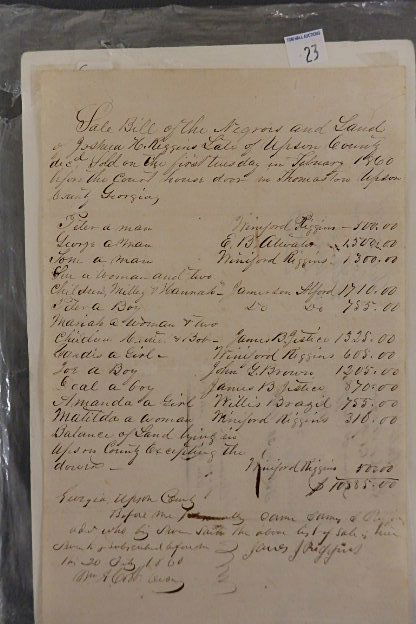 TOWN HALL AUCTIONS
23
Sale Bill of the Negroes and Land
of Joshua H. Riggins Late of Upson County
decd. Sold on the first tuesday in February 1860
before the Court house door in Thomaston Upson
County Georgia,
Peter a man Winiford Riggins - 100.00
George a man E. B. 1,500.00
Tom a man Winiford Riggins 1300.00
a Woman and two
Children, Milley & Hannah - Alford 1710.00
Peter a Boy Do Do 755.00
Mariah a Woman & two
Children & Bob - James B. Justice 1325.00
a Girl - Winiford Riggins 605.00
Joe a Boy John G. Brown 1205.00
a boy James B Justice 870.00
Amanda a Girl Willis Brazil 755.00
Matilda a woman Winiford Riggins 310.00
Balance of Land lying in
Upson County excepting the
dower - Winiford Riggins 50.00
$ 10385.00
Georgia Upson County
Before me came James J Riggins
who being Sworn Saith the above list of Sale is true
Sworn to & subscribed before me James J Riggins
20 1860
Wm A Cobb